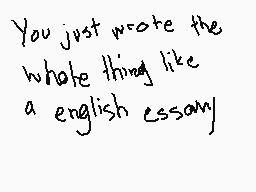 You just wrote the
whole thing like
a english essay